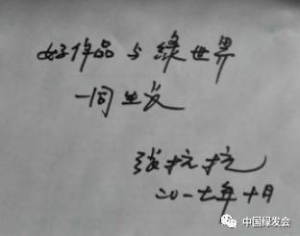 好作品与綠世界
一同出发
张抗抗
二〇一七年十月
中国绿发会